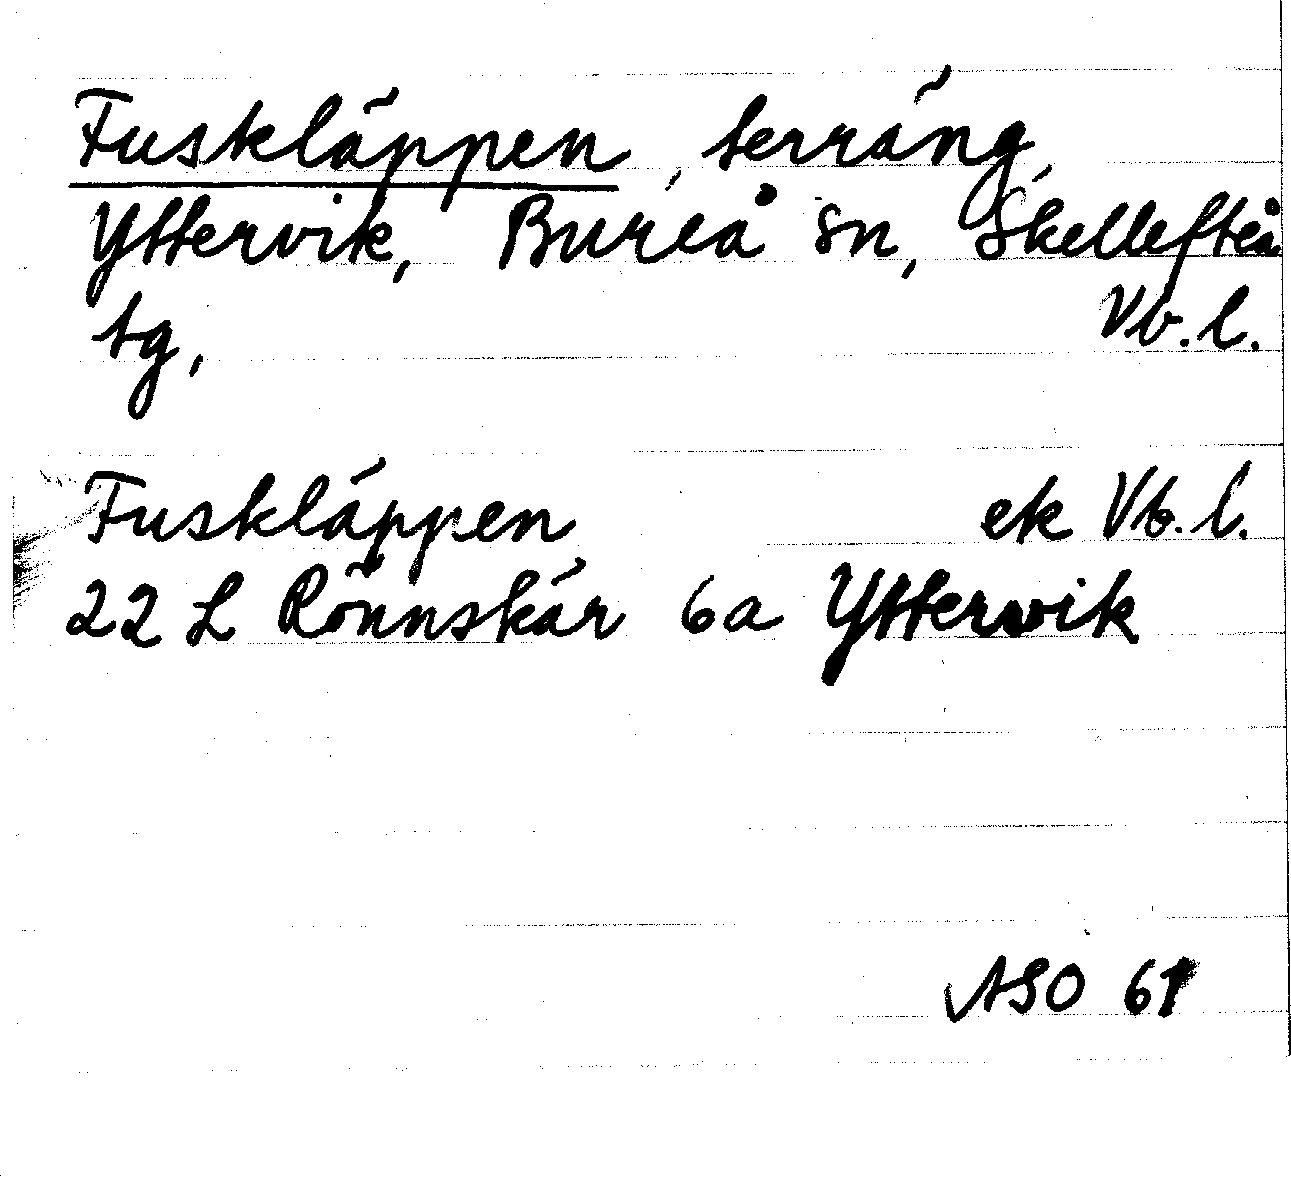 Fuskläppen, terräng,
Yttervik, Bureå sn, Skellefteå
tg, Vb. l.
Fuskläppen ek Vb. l.
22 L Rönnskär 6a Yttervik
ASO 61